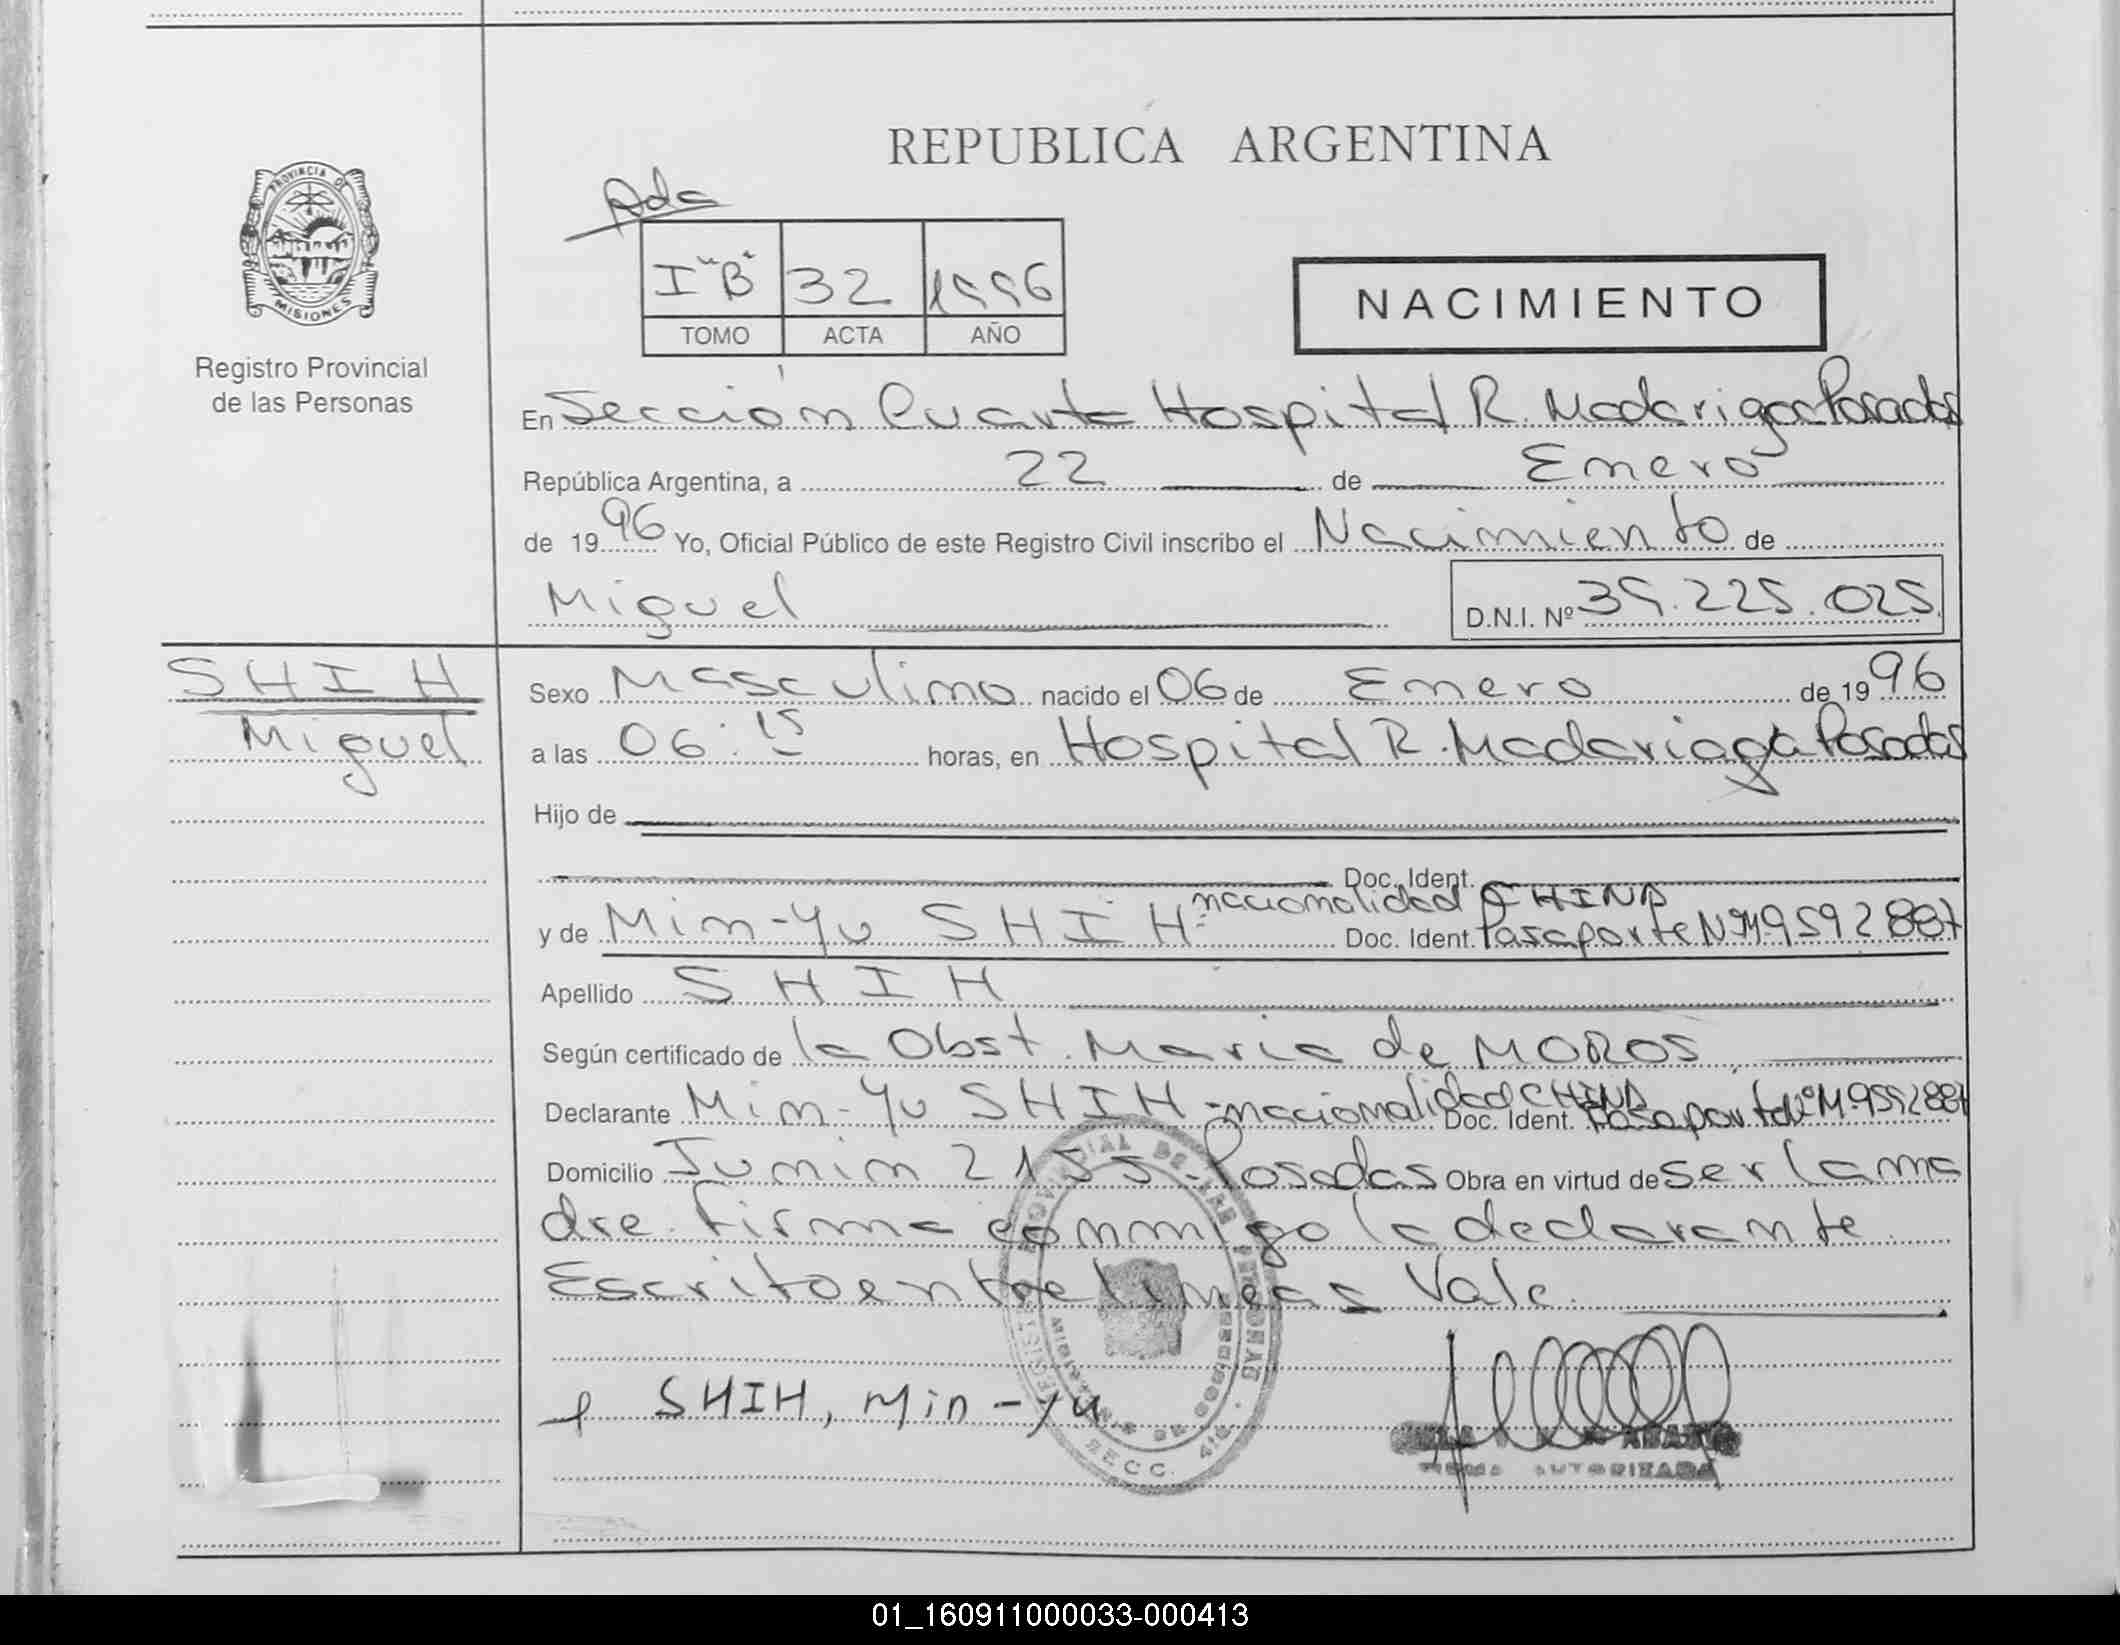 REPUBLICA ARGENTINA
PROVINCIA DE
MISIONES
Registro Provincial
de las Personas
Ada
I "B" 32 1996
TOMO ACTA AÑO
NACIMIENTO
En Sección Cuarta Hospital R. Madariaga Posadas
República Argentina, a 22 de Enero
de 1996 Yo, Oficial Público de este Registro Civil inscribo el Nacimiento de
Miguel D.N.I. Nº 39.225.025.
SHIH
Miguel
Sexo Masculino nacido el 06 de Enero de 1996
a las 06:15 horas, en Hospital R. Madariaga Posadas
Hijo de
Doc. Ident.
nacionalidad CHINA
y de Min-Yu SHIH- Doc. Ident. Pasaporte Nº M9592887
Apellido SHIH
Según certificado de la Obst. Maria de MOROS
Declarante Min-Yu SHIH -nacionalidad CHINA Doc. Ident. Pasaporte Nº M.9592887
Domicilio Junin 2155 - Posadas Obra en virtud de ser la ma
dre. Firma conmigo la declarante
Escrito entre lineas Vale.
SHIH, Min-yu
FIRMA AUTORIZADA
SECC. 4ta.
01_160911000033-000413